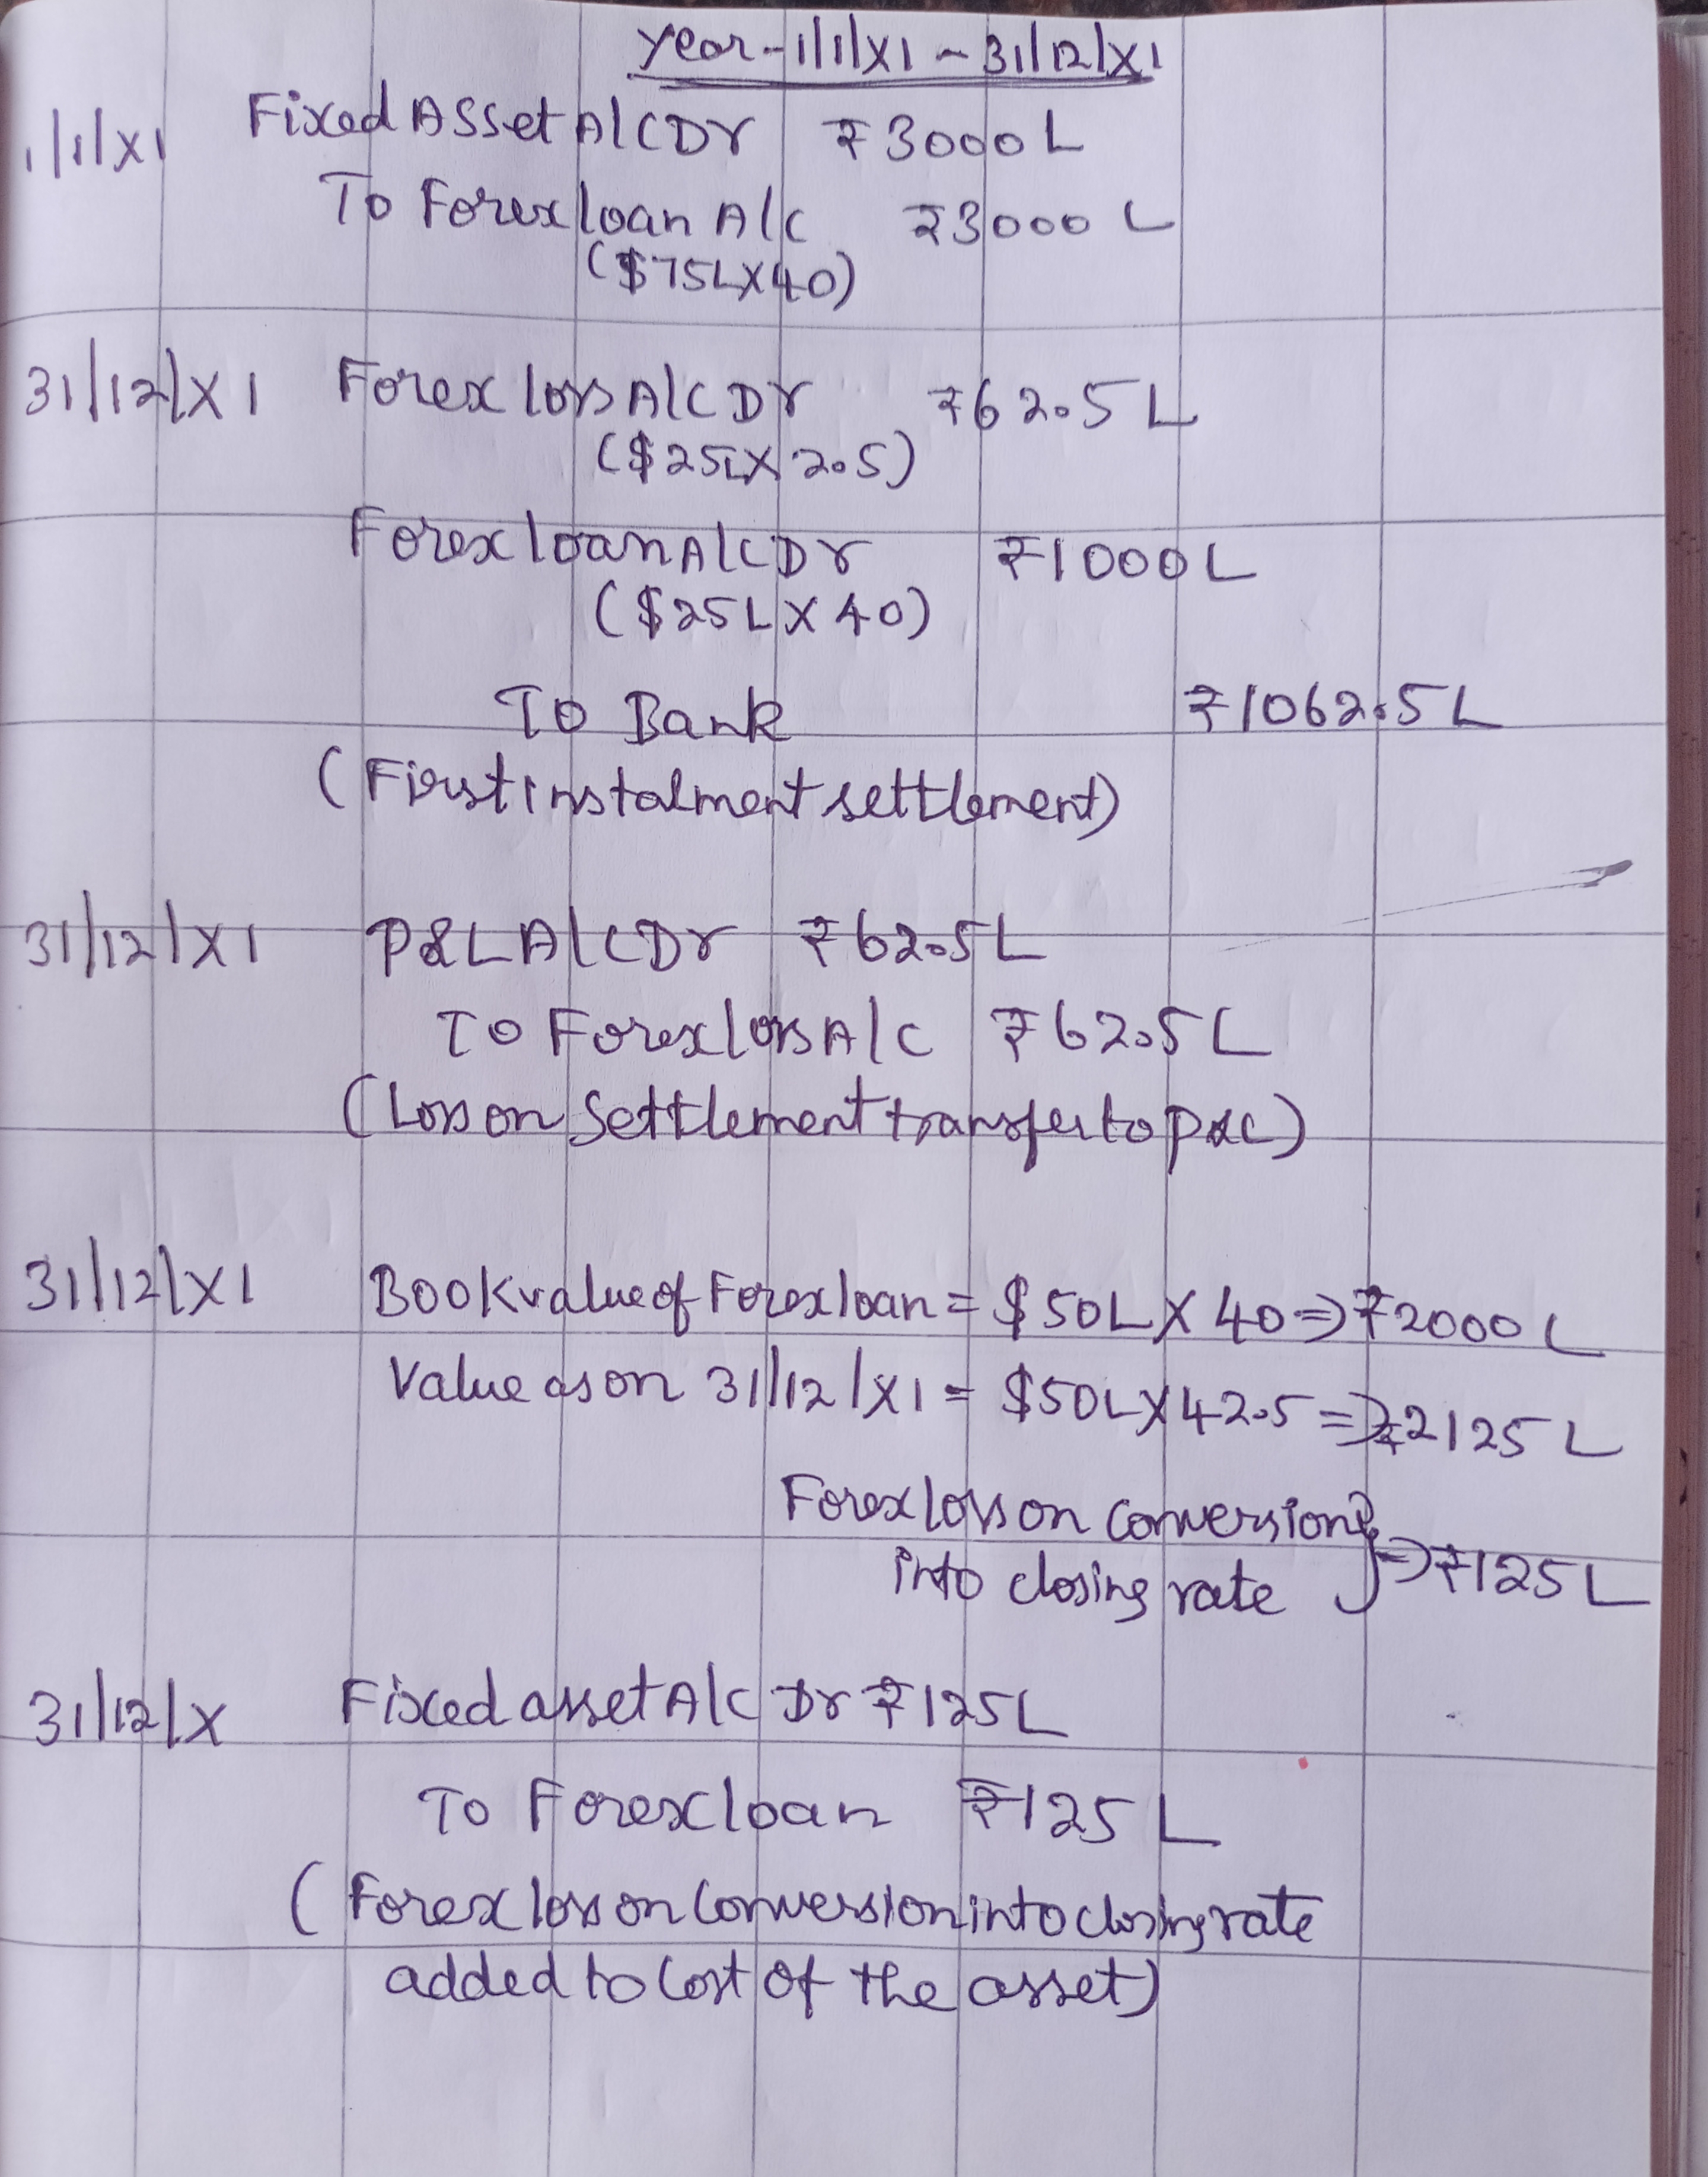 Year - 1/1/X1 - 31/12/X1
1/1/X1 Fixed Asset A/C Dr ₹3000 L
To Forex loan A/C ₹3000 L
($75L X 40)
31/12/X1 Forex loss A/C Dr ₹62.5 L
($25L X 2.5)
Forex loan A/C Dr ₹1000 L
($25L X 40)
To Bank ₹1062.5 L
(First instalment settlement)
31/12/X1 P&L A/C Dr ₹62.5 L
To Forex loss A/C ₹62.5 L
(Loss on Settlement transfer to P&L)
31/12/X1 Book value of Forex loan = $50L X 40 => ₹2000 L
Value as on 31/12/X1 = $50L X 42.5 => ₹2125 L
Forex loss on Conversion
into closing rate } => ₹125 L
31/12/X Fixed asset A/C Dr ₹125 L
To Forex loan ₹125 L
(Forex loss on Conversion into closing rate
added to Cost of the asset)